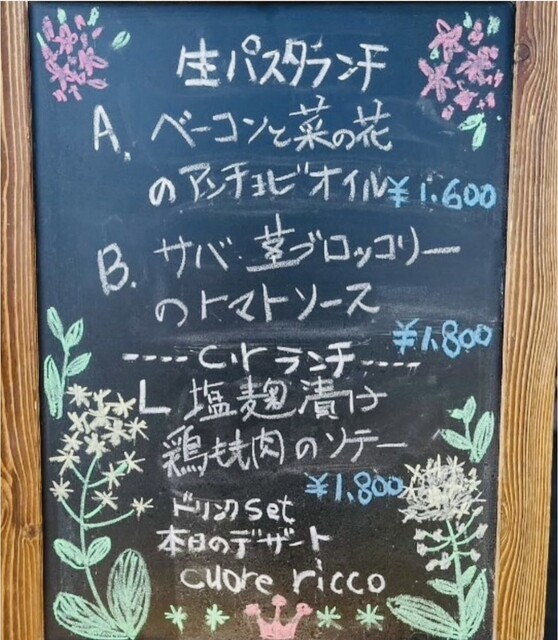 生パスタランチ
A. ベーコンと菜の花
のアンチョビオイル ¥1.600
B. サバ・茎ブロッコリー
のトマトソース
¥1.800
---- cuorランチ ----
L 塩麹漬け
鶏もも肉のソテー
¥1.800
ドリンクset
本日のデザート
cuore ricco